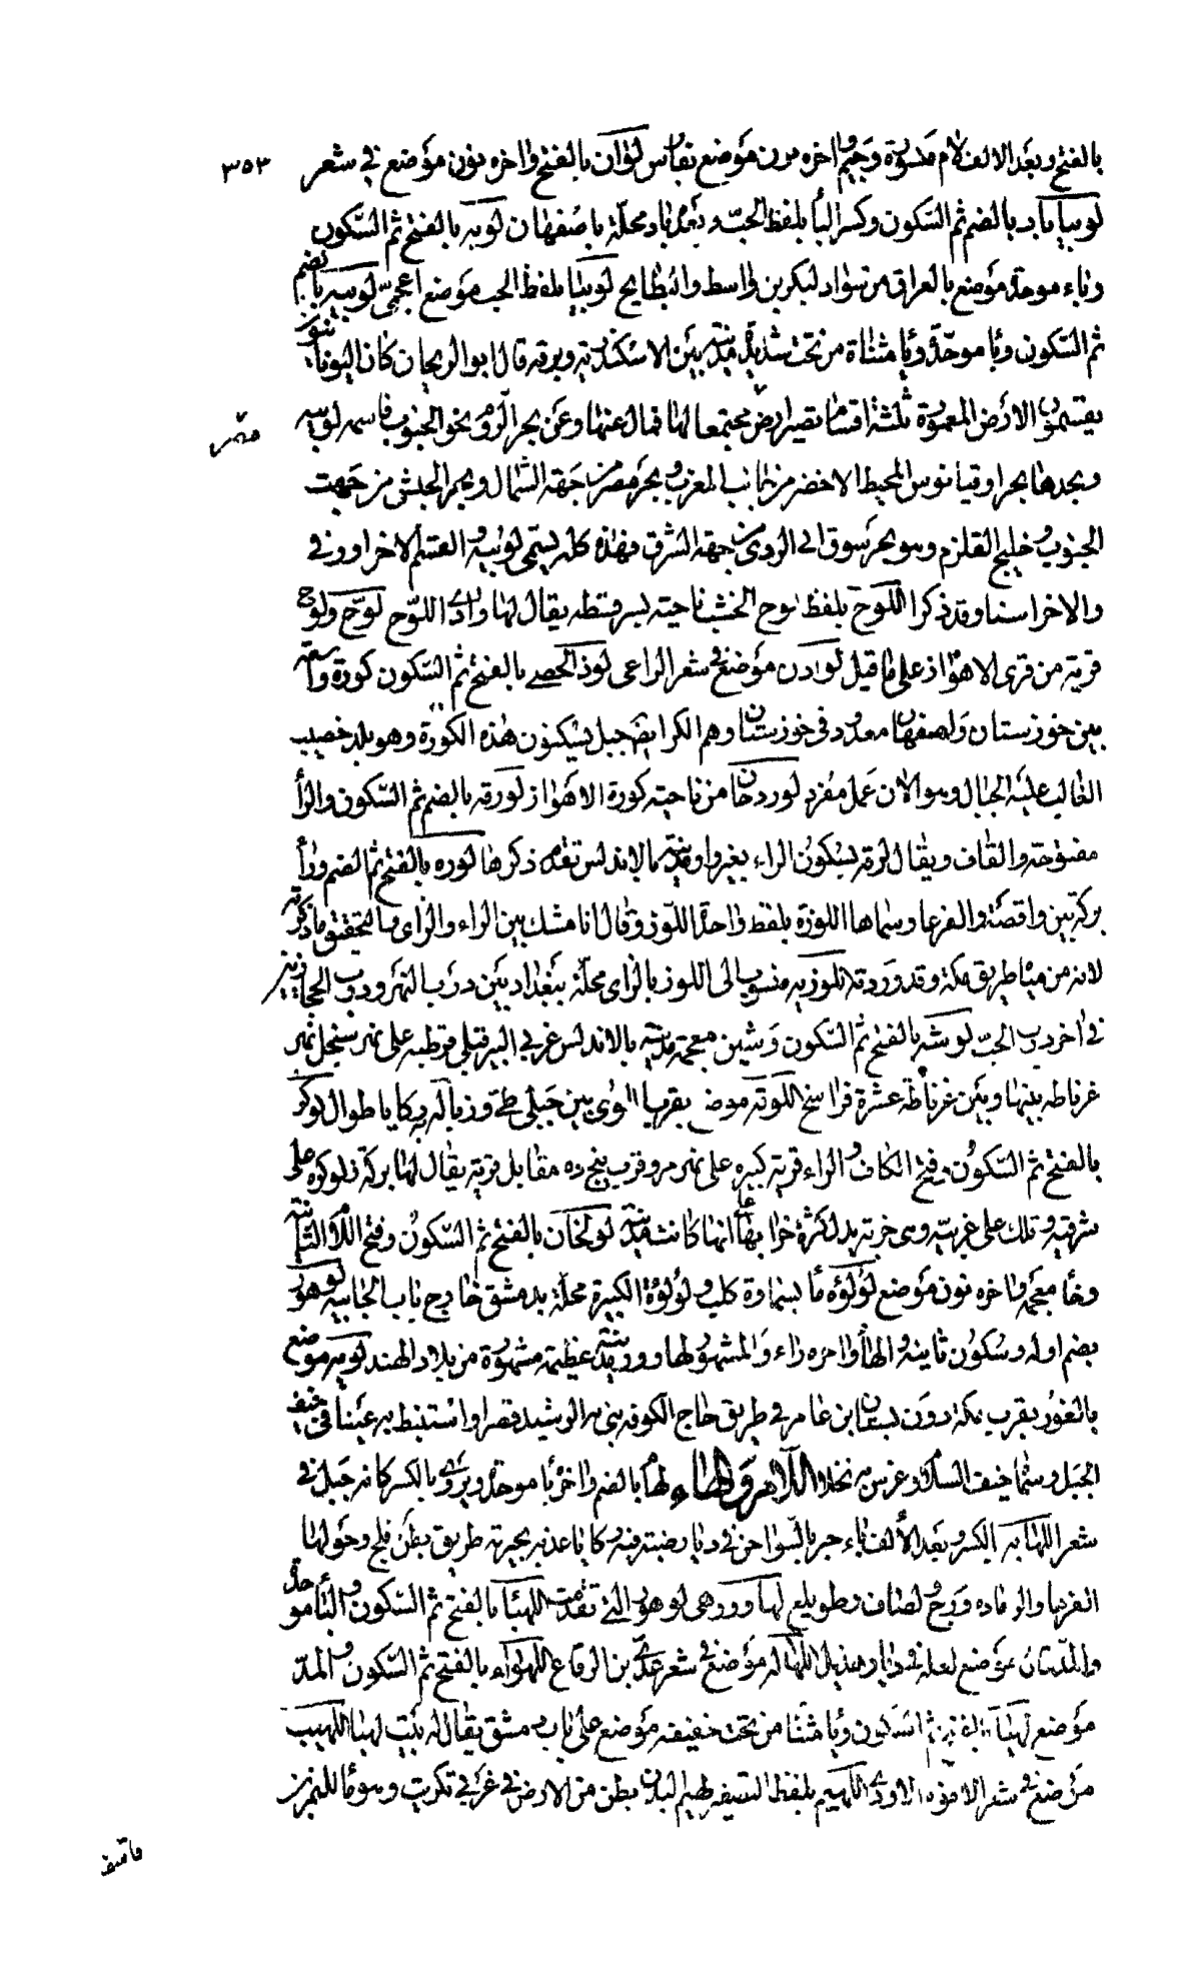 ٣٥٣
بالفتح وبعد الالف لام مكسورة وجيم واخره نون موضع بفارس لوان بالفتح واخره نون موضع في شعر
لوبياباد بالضم ثم السكون وكسر البأ بلفظ الحبّ وبعده اباد محلّة باصفهان لوبه بالفتح ثم السكون
وباء موحدة موضع بالعراق من سواد كسكر بين واسط والبطايح لوبيا بلفظ الحب موضع اعجمىّ لوبيه بالضم
ثم السكون وبا موحّدة ويا مثناة من تحت مدينة بين الاسكندرية وبرقة قال ابو الريحان كان اليونانيون
يقسمون الارض المعمورة ثلثة اقسام تصير ارض مصر مجتمعا لها فما مال عنها وعن بحر الروم نحو الجنوب فاسمه لوبيه
ويحدها بحر اوقيانوس المحيط الاخضر من جانب المغرب وبحر مصر من جهة الشمال وبحر الحبش من جهت
الجنوب وخليج القلزم وهو بحر سوق اى الردى من جهة الشرق فهذه كله يسمّى لوبيه والقسم الاخر اورفى
والاخر اسيا وقد ذكرا اللوح بلفظ لوح الخشب ناحيته بسرقسطه يقال لها وادى اللوح لوخ
قرية من قرى الاهواز على ما قيل لوذان موضع في شعر الراعى لوذ الحصى بالفتح ثم السكون كورة واسعة
بين خوزستان واصفهان معدود في خوزستان وهم اكراد جبل يسكنون هذه الكورة وهو بلد خصيب
الغالب عليه الجبال وهو الان عمل مفرد لوردجان من ناحيته كورة الاهواز لورقه بالضم ثم السكون والرأ
مفتوحة والقاف ويقال لرقه بسكون الراء بغير واو مدينة بالاندلس تقدم ذكرها لوزه بالفتح ثم الضم ورأ
بركة بين واقصة والقرعا وسماها اللوزة بلفظ واحدة اللوز وقال انا مشك بين الراء والزاى والتحقيق ما ذكرته
لانه من مياه طريق مكة وقد وردته اللوزيه منسوب الى اللوز بالزاى محلّة ببغداد بين درب النهر ودرب
في اخر درب الحبّ لوشه بالفتح ثم السكون وشين معجمة مدينة بالاندلس غربى البيرة قبلى قرطبه على نهر سنجل نهر
غرناطه بينها وبين غرناطة عشرة فراسخ اللوى بين جبلى طى وزباله به ركايا طوال لوكر
بالفتح ثم السكون وفتح الكاف والراء قرية كبيره على نهر مرو قرب پنج ده مقابل قرية يقال لها بركدز لوكره على
شرقيه وتلك على غربيه وهى خربة يدل كثرة خرابها على انها كانت مدينة لولخان بالفتح ثم السكون وفتح اللام الثانية
وخا معجمه واخره نون موضع لؤلؤه مأ بسماوة كلب ولؤلؤة الكبيرة محلّة بدمشق خارج باب الجابيه لوهور
بضم اوله وسكون ثانيه والهاء واخره راء والمشهور لهاوور مدينة عظيمة مشهورة من بلاد الهند لويه موضع
بالغور بقرب مكة دون بستان ابن عامر في طريق حاج الكوفه بنى به الرشيد قصرا واستنبط به عينا في خيف
الجبل وسماها خيف السلام وغرس به نخلا اللام والهاء لهاب بالضم واخره با موحدة ويروى بالكسر كانه جبل في
شعر اللهابه بالكسر وبعد الالف باء خبر بالسواحن في ديار ضبة فيه ركايا عذبة طريق بطن فلج وحولها
القرعا والرماده ووج لصاف وطويلع لهاوور وهى لوهور التى تقدمت اللهبا بالفتح ثم السكون والبأ موحدة
والمدّ موضع لعله في ديار هذيل اللهاله موضع في شعر عدىّ بن الرقاع اللهواء بالفتح ثم السكون والمدّ
موضع لهيا بالفتح ثم السكون ويا مثناة من تحت خفيفة موضع على باب دمشق يقال له بيت لهيا اللهيب
موضع في شعر الافوه الاودى اللهيم بلفظ التصغير لهيم البدن بطن من الارض في غربى تكريت وهو ما للنمر بن
قاسط